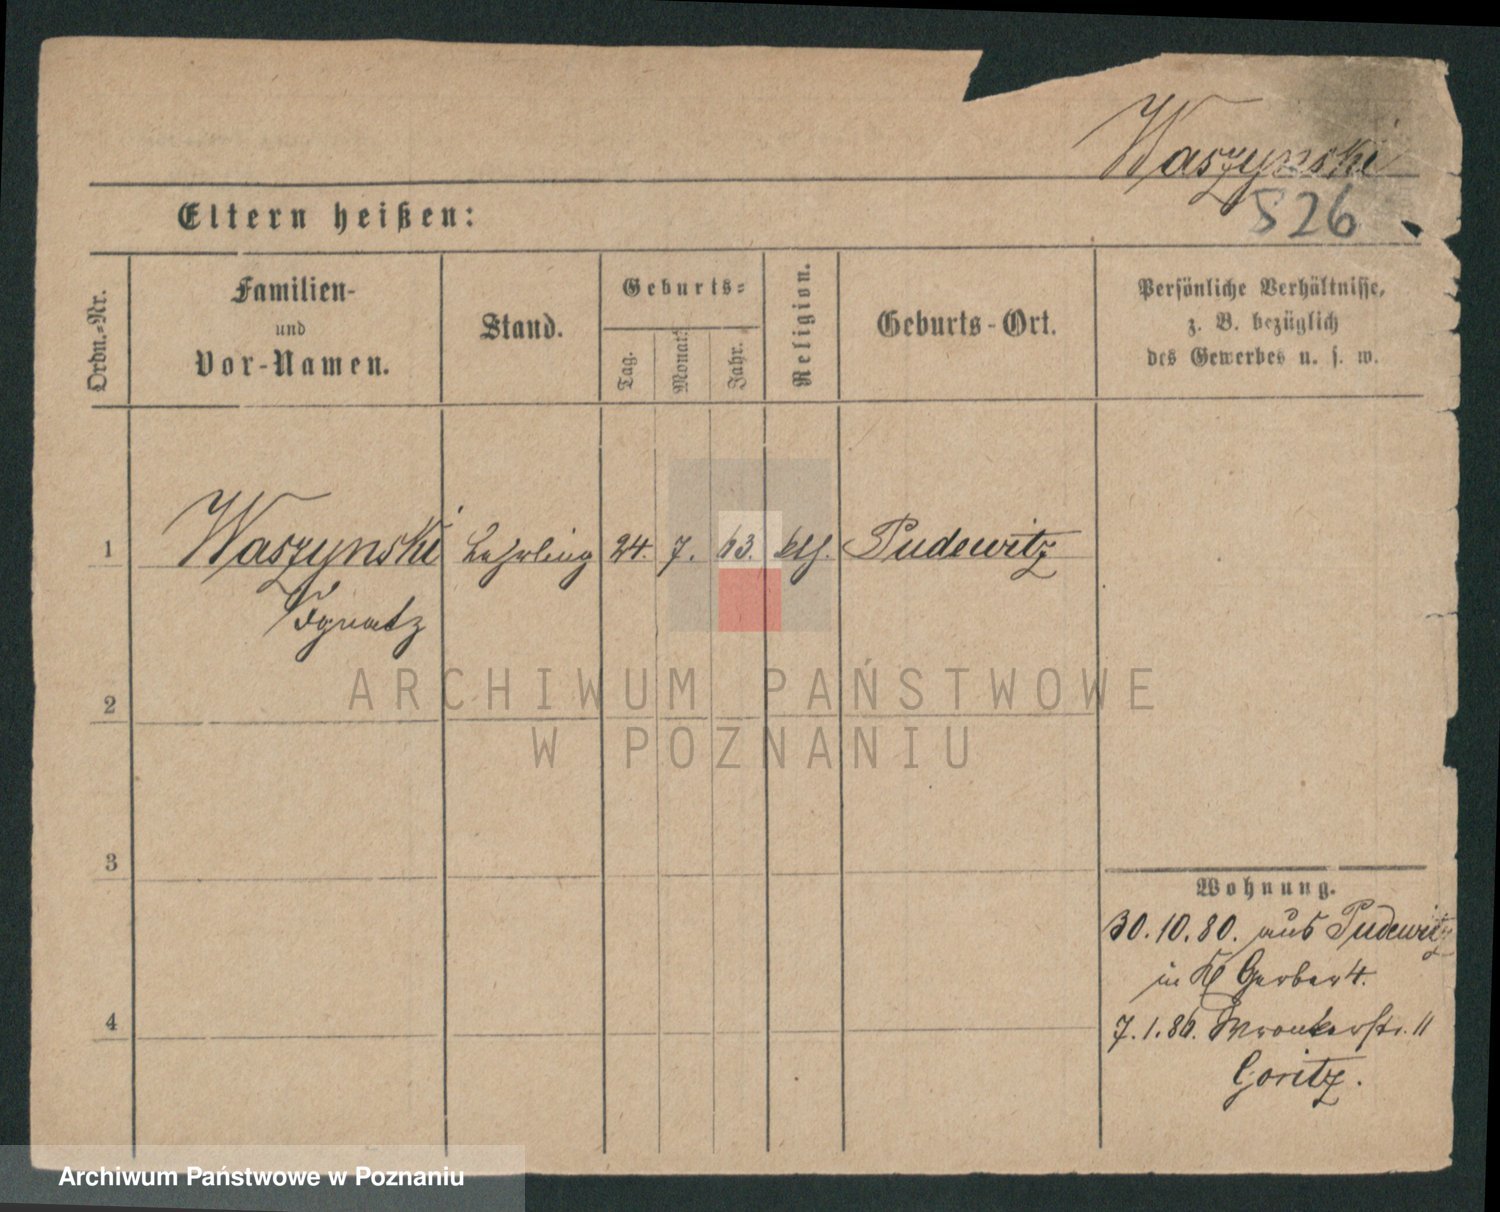 Waszynski
526
Eltern heißen:
Ordn.-Nr.
Familien-
und
Vor-Namen.
Stand.
Geburts-
Tag.
Monat.
Jahr.
Religion.
Geburts-Ort.
Persönliche Verhältnisse,
z. B. bezüglich
des Gewerbes u. s. w.
1 Waszynski Lehrling 24. 7. 63. kth. Pudewitz
Ignatz
2
3
4
Wohnung.
30.10.80. aus Pudewitz
in Kl Gerber 4.
7.1.86. Wronkerstr. 11
Goritz.
ARCHIWUM PAŃSTWOWE
W POZNANIU
Archiwum Państwowe w Poznaniu